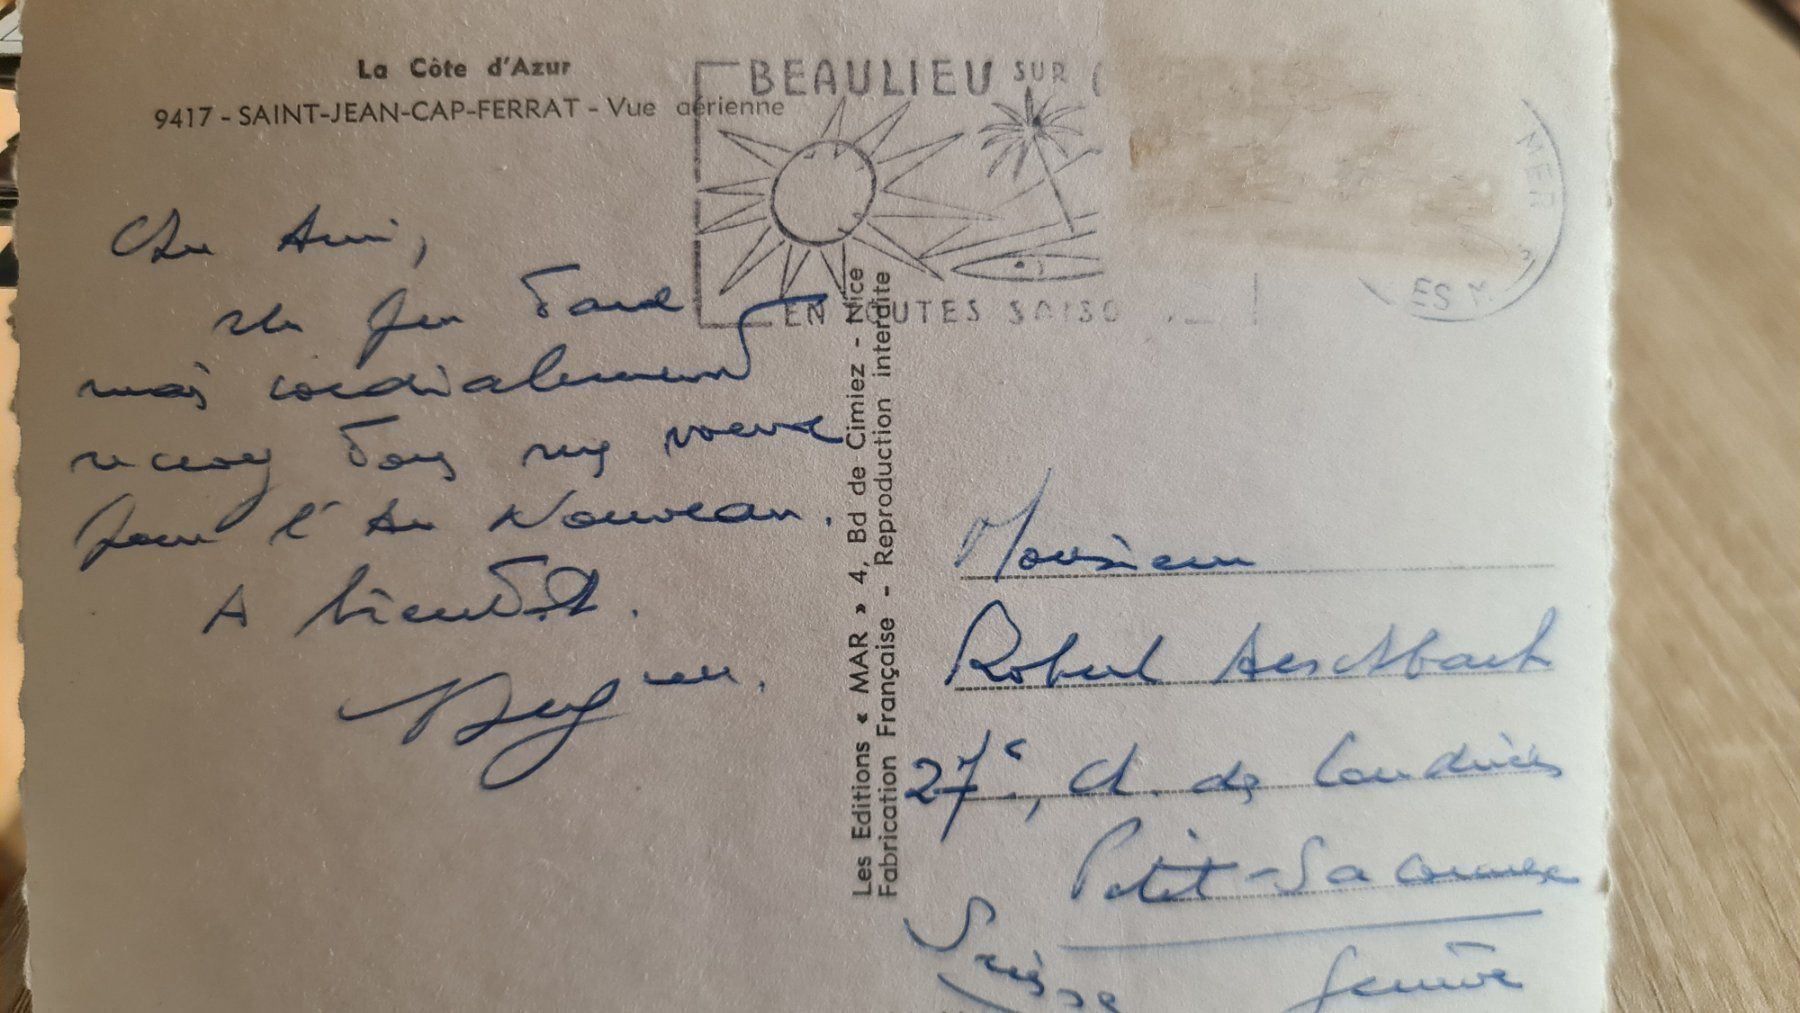 La Côte d'Azur
9417 - SAINT-JEAN-CAP-FERRAT - Vue aérienne
BEAULIEU SUR
EN TOUTES SAISO
NER
ES M
Cher Ami,
Un peu tard
mais cordialement
recevez tous mes voeux
pour l'An Nouveau.
A bientôt.
Les Editions « MAR » 4, Bd de Cimiez - Nice
Fabrication Française - Reproduction interdite
Monsieur
Robert Aeschbach
27c, ch. de
Petit-Saconnex
Suisse Genève